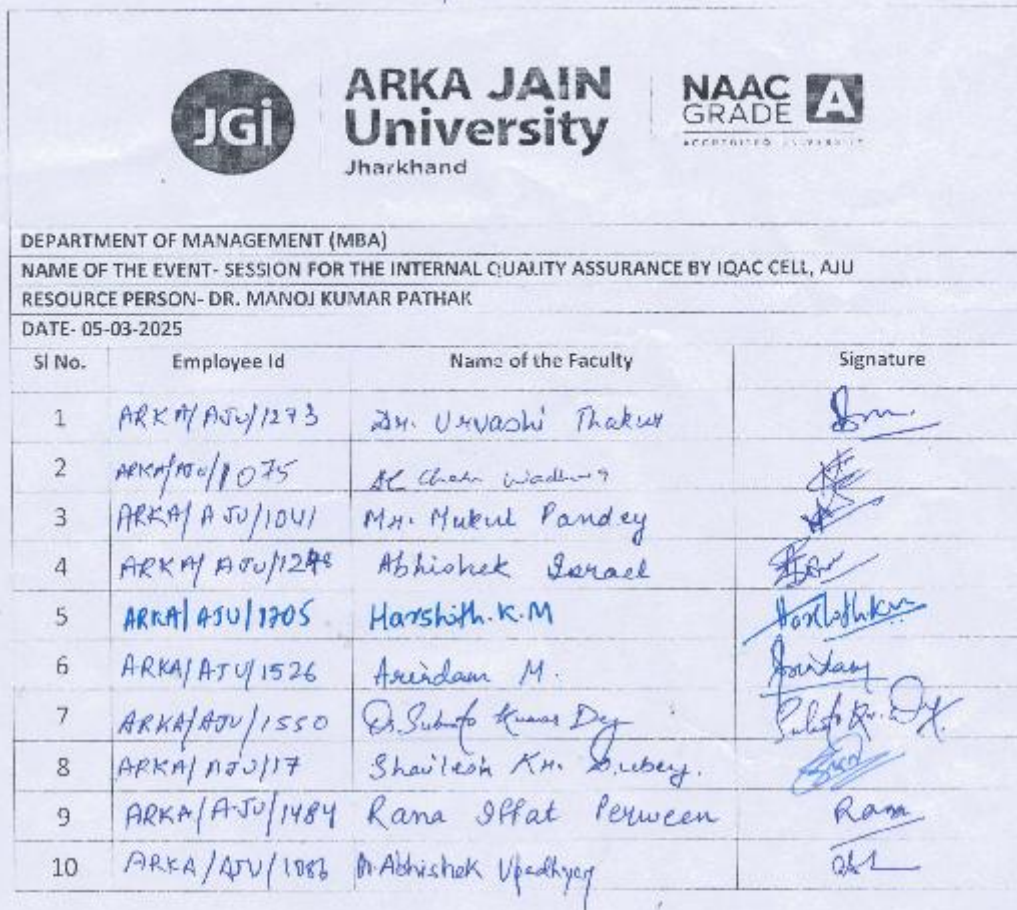 JGi
ARKA JAIN
University
Jharkhand
NAAC
GRADE A
ACCREDITED UNIVERSITY
DEPARTMENT OF MANAGEMENT (MBA)
NAME OF THE EVENT- SESSION FOR THE INTERNAL QUALITY ASSURANCE BY IQAC CELL, AJU
RESOURCE PERSON- DR. MANOJ KUMAR PATHAK
DATE- 05-03-2025
Sl No. Employee Id Name of the Faculty Signature
1 ARKA/AJU/1273 Dr. Urvashi Thakur
2 ARKA/AJU/1075
3 ARKA/AJU/1041 Mr. Mukul Pandey
4 ARKA/AJU/ Abhishek Israel
5 ARKA/AJU/1705 Harshith.K.M Harshithkm
6 ARKA/AJU/1526 Arindam M. Arindam
7 ARKA/AJU/1550 Dr. Subrato Kumar Dey
8 ARKA/AJU/17 Shailesh Kr. Dubey.
9 ARKA/AJU/1484 Rana Iffat Perween Rana
10 ARKA/AJU/1086 Dr. Abhishek Upadhyay